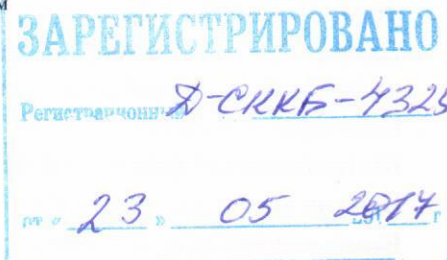 м
ЗАРЕГИСТРИРОВАНО
Регистрационный Д-СККБ-4325
от « 23 » 05 2017 г